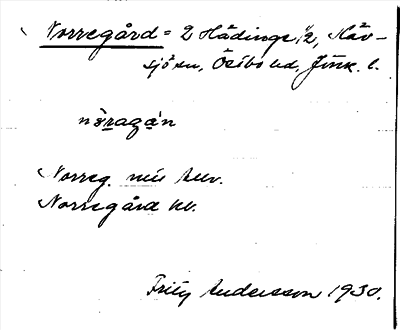 Norregård = 2 Hädinge 1/2, Näv-
sjö sn, Östbo hd, Jönk. l.
nò̱ragɑ̱̀n
Norreg. min Anv.
Norregård kb.
Fritz Andersson 1930.